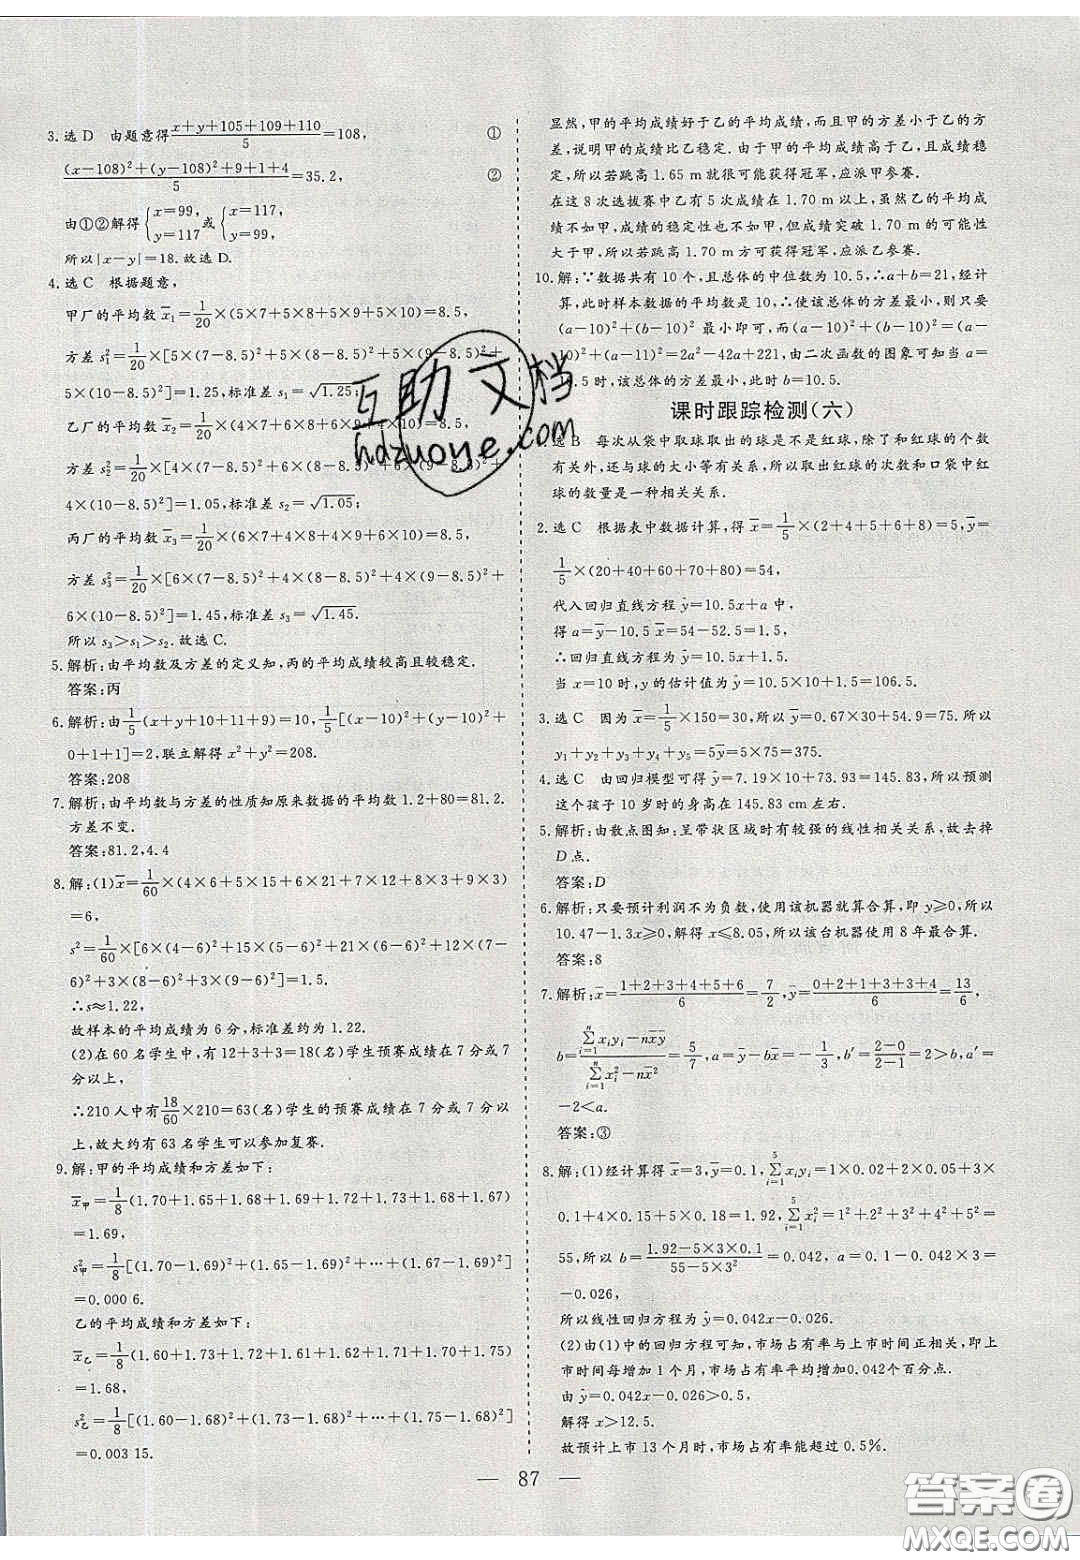 3. 选 D 由题意得(x+y+105+109+110)/5=108, ①
((x-108)²+(y-108)²+9+1+4)/5=35.2, ②
由①②解得{x=99, y=117或{x=117, y=99,
所以|x-y|=18.故选 D.
4. 选 C 根据题意,
甲厂的平均数 x̄₁=1/20×(5×7+5×8+5×9+5×10)=8.5,
方差 s₁²=1/20×[5×(7-8.5)²+5×(8-8.5)²+5×(9-8.5)²+
5×(10-8.5)²]=1.25,标准差 s₁=√1.25;
乙厂的平均数 x̄₂=1/20×(4×7+6×8+6×9+4×10)=8.5,
方差 s₂²=1/20×[4×(7-8.5)²+6×(8-8.5)²+6×(9-8.5)²+
4×(10-8.5)²]=1.05,标准差 s₂=√1.05;
丙厂的平均数 x̄₃=1/20×(6×7+4×8+4×9+6×10)=8.5,
方差 s₃²=1/20×[6×(7-8.5)²+4×(8-8.5)²+4×(9-8.5)²+
6×(10-8.5)²]=1.45,标准差 s₃=√1.45;
所以 s₃>s₁>s₂.故选 C.
5. 解析:由平均数及方差的定义知,丙的平均成绩较高且较稳定.
答案:丙
6. 解析:由1/5(x+y+10+11+9)=10,1/5[(x-10)²+(y-10)²+
0+1+1]=2,联立解得 x²+y²=208.
答案:208
7. 解析:由平均数与方差的性质知原来数据的平均数 1.2+80=81.2.
方差不变.
答案:81.2,4.4
8. 解:(1)x̄=1/60×(4×6+5×15+6×21+7×12+8×3+9×3)
=6,
s²=1/60×[6×(4-6)²+15×(5-6)²+21×(6-6)²+12×(7-
6)²+3×(8-6)²+3×(9-6)²]=1.5.
∴s≈1.22.
故样本的平均成绩为 6 分,标准差约为 1.22.
(2)在 60 名学生中,有 12+3+3=18(名)学生预赛成绩在 7 分或 7
分以上,
∴210 人中有18/60×210=63(名)学生的预赛成绩在 7 分或 7 分以
上,故大约有 63 名学生可以参加复赛.
9. 解:甲的平均成绩和方差如下:
x̄甲=1/8(1.70+1.65+1.68+1.69+1.72+1.73+1.68+1.67)
=1.69,
s²甲=1/8[(1.70-1.69)²+(1.65-1.69)²+…+(1.67-1.69)²]
=0.000 6.
乙的平均成绩和方差如下:
x̄乙=1/8(1.60+1.73+1.72+1.61+1.62+1.71+1.70+1.75)
=1.68,
s²乙=1/8[(1.60-1.68)²+(1.73-1.68)²+…+(1.75-1.68)²]
=0.003 15.
显然,甲的平均成绩好于乙的平均成绩,而且甲的方差小于乙的方
差,说明甲的成绩比乙稳定.由于甲的平均成绩高于乙,且成绩稳
定,所以若跳高 1.65 m 就很可能获得冠军,应派甲参赛.
在这 8 次选拔赛中乙有 5 次成绩在 1.70 m 以上,虽然乙的平均
成绩不如甲,成绩的稳定性也不如甲,但成绩突破 1.70 m 的可能性
大于甲,所以若跳高 1.70 m 方可获得冠军,应派乙参赛.
10. 解:∵数据共有 10 个,且总体的中位数为 10.5,∴a+b=21,经计
算,此时样本数据的平均数是 10,∴使该总体的方差最小,只要
(a-10)²+(b-10)² 最小即可,而(a-10)²+(b-10)²=(a-
10)²+(a-11)²=2a²-42a+221,由二次函数的图象可知当 a=
10.5 时,该总体的方差最小,此时 b=10.5.
课时跟踪检测(六)
1. 选 B 每次从袋中取球取出的球是不是红球,除了和红球的个数
有关外,还与球的大小等有关系,所以取出红球的次数和口袋中红
球的数量是一种相关关系.
2. 选 C 根据表中数据计算,得 x̄=1/5×(2+4+5+6+8)=5,ȳ=
1/5×(20+40+60+70+80)=54,
代入回归直线方程 ŷ=10.5x+a 中,
得 a=ȳ-10.5 x̄=54-52.5=1.5,
∴回归直线方程为 ŷ=10.5x+1.5.
当 x=10 时,y 的估计值为 ŷ=10.5×10+1.5=106.5.
3. 选 C 因为 x̄=1/5×150=30,所以 ȳ=0.67×30+54.9=75.所以
y₁+y₂+y₃+y₄+y₅=5ȳ=5×75=375.
4. 选 C 由回归模型可得 y=7.19×10+73.93=145.83,所以预测
这个孩子 10 岁时的身高在 145.83 cm 左右.
5. 解析:由散点图知:呈带状区域时有较强的线性相关关系,故去掉
D 点.
答案:D
6. 解析:只要预计利润不为负数,使用该机器就算合算,即 y≥0,所以
10.47-1.3x≥0,解得 x≤8.05,所以该台机器使用 8 年最合算.
答案:8
7. 解析:x̄=(1+2+3+4+5+6)/6=7/2,ȳ=(0+2+1+3+3+4)/6=13/6,
b=(∑ⁿᵢ₌₁xᵢyᵢ-nx̄ȳ)/(∑ⁿᵢ₌₁xᵢ²-nx̄²)=5/7,a=ȳ-bx̄=-1/3,b′=(2-0)/(2-1)=2>b,a′=
-2<a.
答案:③
8. 解:(1)经计算得 x̄=3,ȳ=0.1,∑⁵ᵢ₌₁xᵢyᵢ=1×0.02+2×0.05+3×
0.1+4×0.15+5×0.18=1.92,∑⁵ᵢ₌₁xᵢ²=1²+2²+3²+4²+5²=
55,所以 b=(1.92-5×3×0.1)/(55-5×3²)=0.042,a=0.1-0.042×3=
-0.026,
所以线性回归方程为 ŷ=0.042x-0.026.
(2)由(1)中的回归方程可知,市场占有率与上市时间正相关,即上
市时间每增加 1 个月,市场占有率平均增加0.042个百分点.
由 ŷ=0.042x-0.026>0.5,
解得 x>12.5.
故预计上市 13 个月时,市场占有率能超过 0.5%.
— 87 —
互助文档
hdzuoye.com
答案圈
MXQE.COM